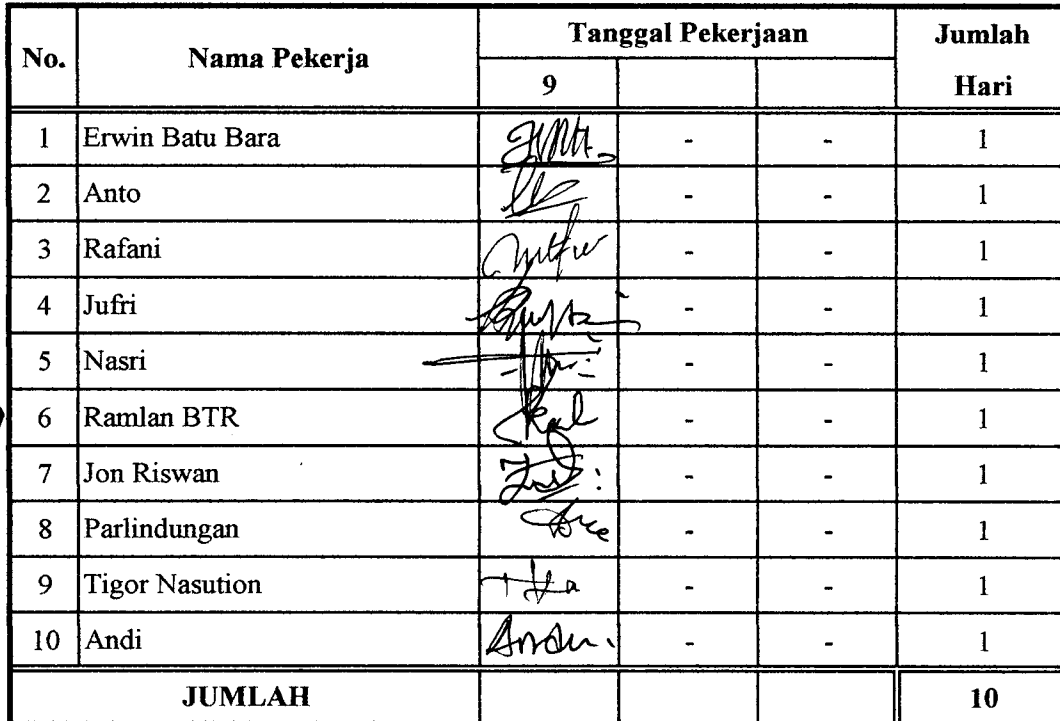 No. Nama Pekerja Tanggal Pekerjaan Jumlah Hari
9
1 Erwin Batu Bara - - 1
2 Anto - - 1
3 Rafani - - 1
4 Jufri - - 1
5 Nasri - - 1
6 Ramlan BTR - - 1
7 Jon Riswan - - 1
8 Parlindungan - - 1
9 Tigor Nasution - - 1
10 Andi - - 1
JUMLAH 10